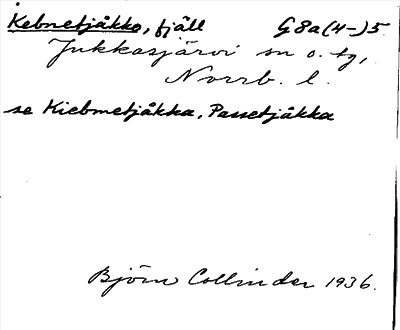 Kebnetjåkko, fjäll G8a(4-)5
Jukkasjärvi sn o. tg,
Norrb. l.
se Kiebmetjåkka, Passetjåkka
Björn Collinder 1936.